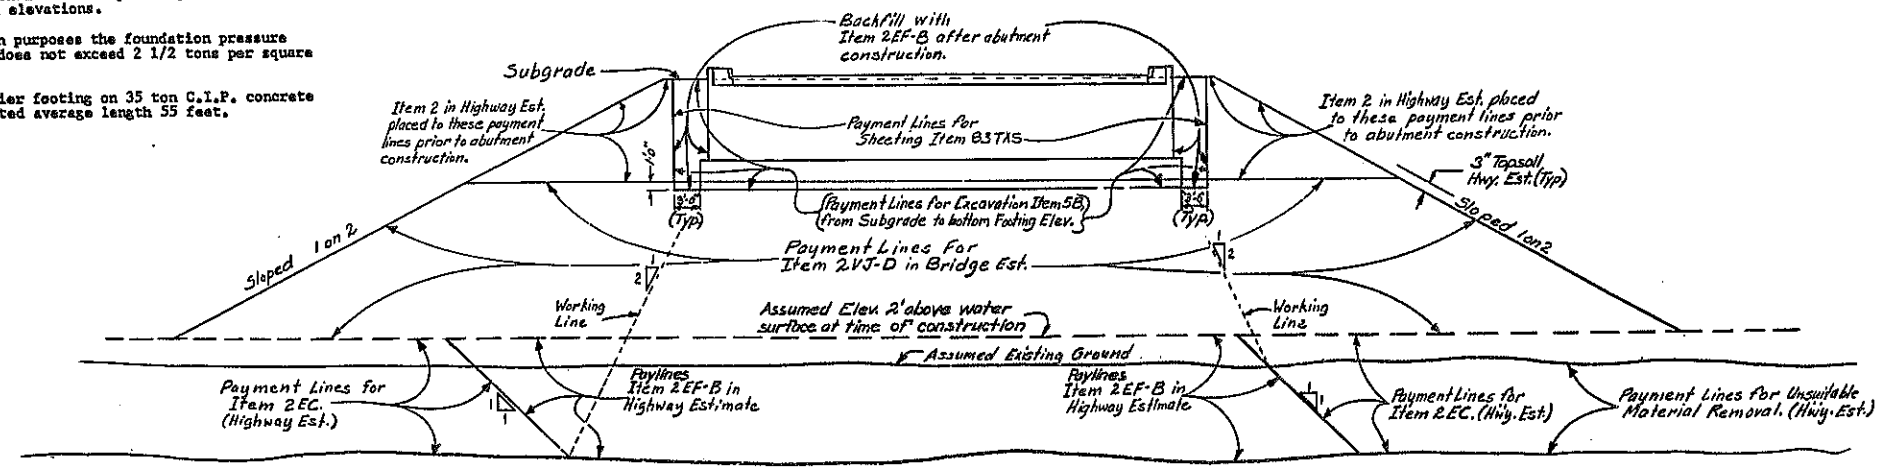 elevations.
n purposes the foundation pressure
does not exceed 2 1/2 tons per square
ier footing on 35 ton C.I.P. concrete
ted average length 55 feet.
Backfill with
Item 2EF-B after abutment
construction.
Subgrade
Item 2 in Highway Est.
placed to these payment
lines prior to abutment
construction.
Payment Lines for
Sheeting Item B3TAS
Item 2 in Highway Est. placed
to these payment lines prior
to abutment construction.
3" Topsoil
Hwy. Est. (Typ)
1'0"
3'-6"
(Typ)
(Payment Lines for Excavation Item 5B,)
(from Subgrade to bottom Footing Elev.)
3'-6"
(Typ)
Sloped 1 on 2
Sloped 1 on 2
Payment Lines For
Item 2VJ-D in Bridge Est.
1
2
1
2
Working
Line
Assumed Elev. 2' above water
surface at time of construction
Working
Line
Assumed Existing Ground
Payment Lines for
Item 2EC.
(Highway Est.)
1
1
Paylines
Item 2EF-B in
Highway Estimate
Paylines
Item 2EF-B in
Highway Estimate
1
1
Payment Lines for
Item 2EC. (Hwy. Est.)
Payment Lines for Unsuitable
Material Removal. (Hwy. Est.)